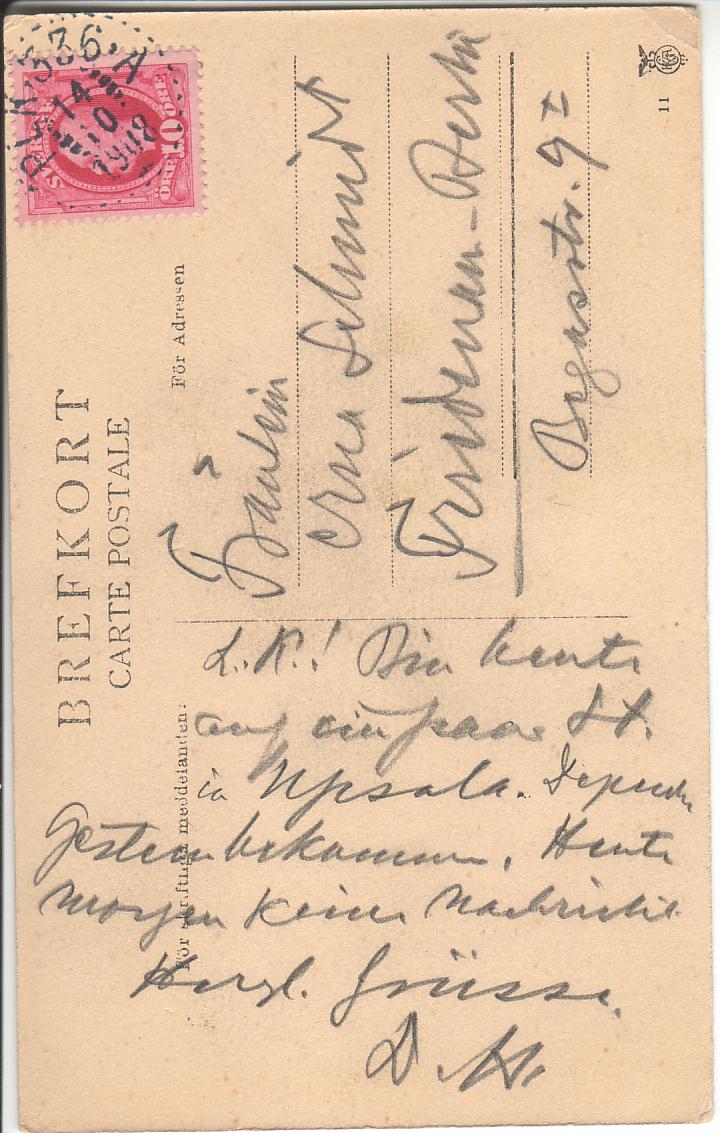 BREFKORT
CARTE POSTALE
För skriftliga meddelanden:
För Adressen
PLK 336. A
14
10
1908
SVERIGE
10 ÖRE
ÖRE
Fräulein
Erna Schmidt
Friedenau-Berlin
Begasstr. 9 I
L.K.! Bin heute
auf ein paar St.
in Upsala. Depesche
Gestern bekommen. Heute
morgen keine Nachricht.
Herzl. Grüsse.
D. M.
11